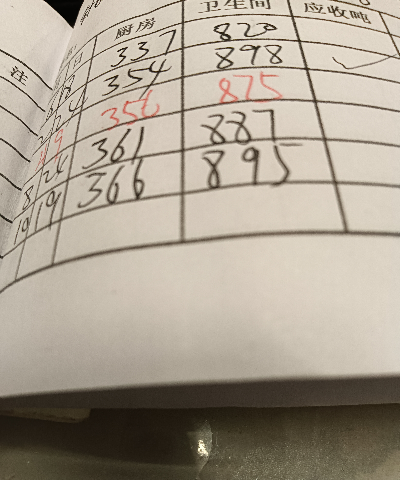 注 日 厨房 卫生间 应收吨
337 820
354 898
356 875
8 24 361 887
10 19 366 895